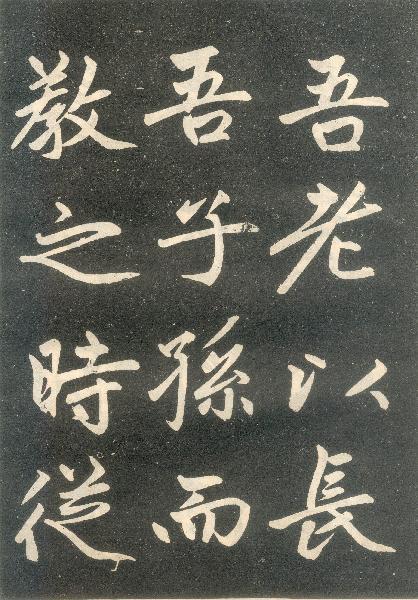 吾老以長
吾子孫而
教之時從